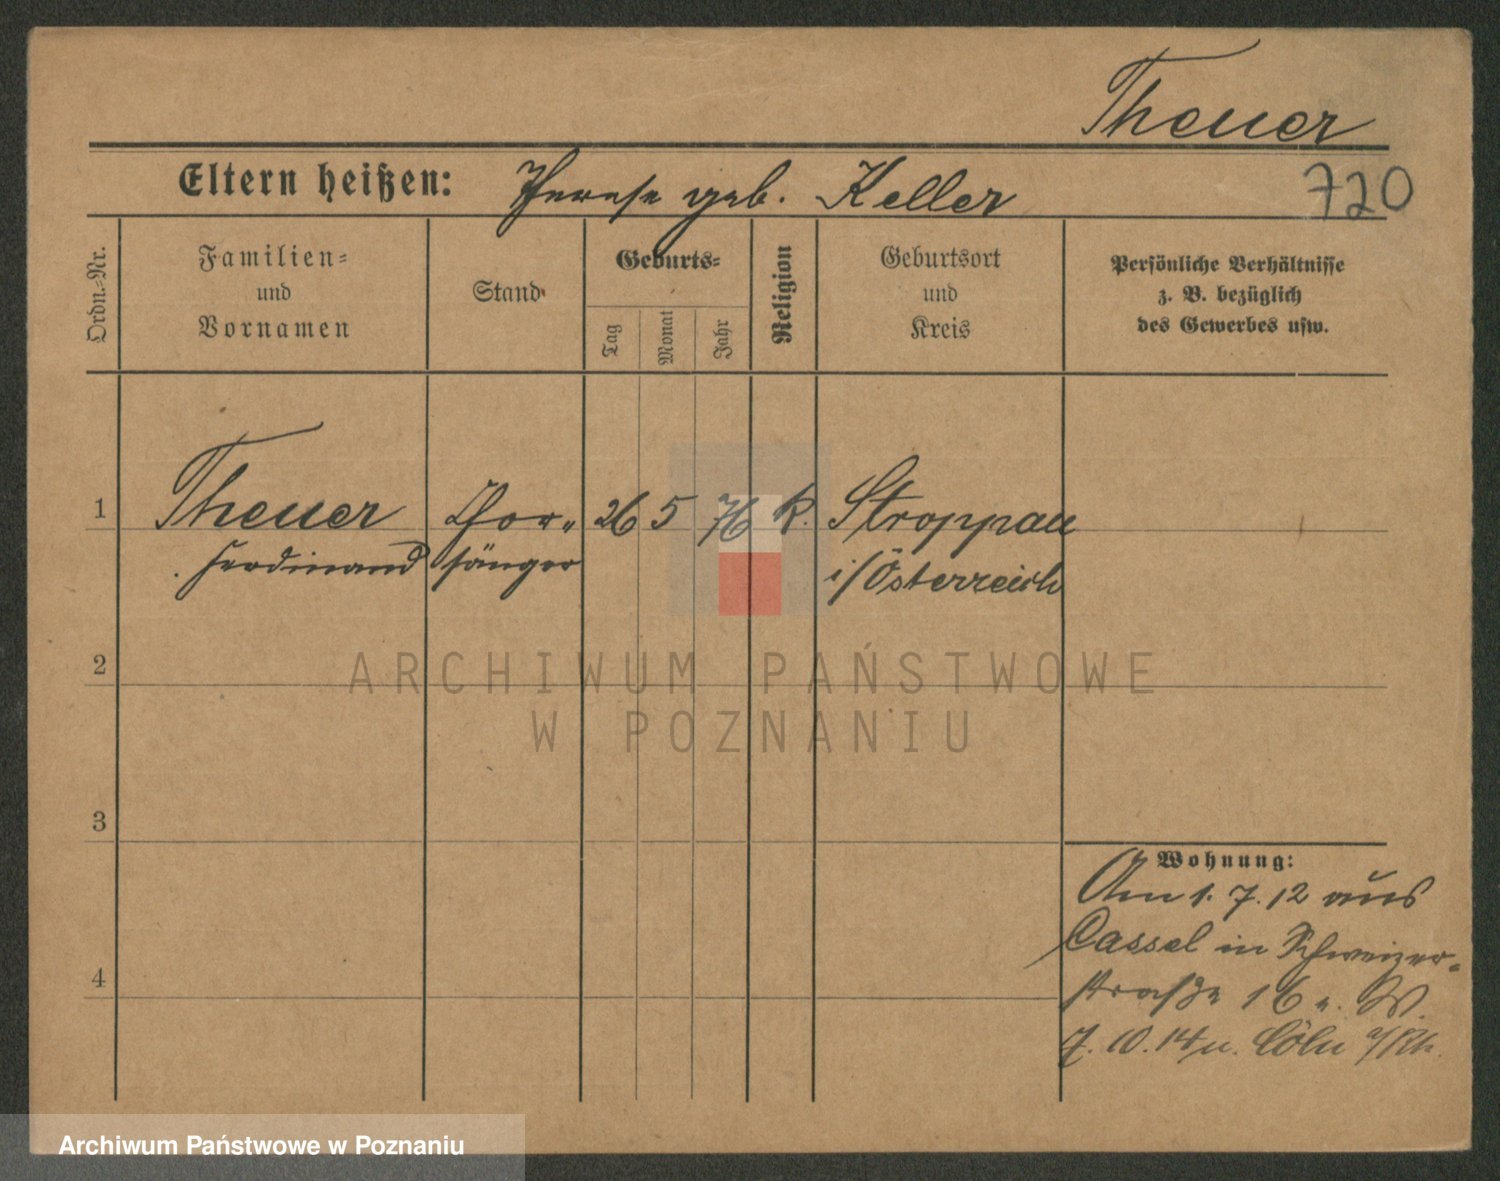 Theuer
Eltern heißen: Therese geb. Keller
720
Ordn.-Nr.
Familien-
und
Vornamen
Stand
Geburts-
Tag
Monat
Jahr
Religion
Geburtsort
und
Kreis
Persönliche Verhältnisse
z. B. bezüglich
des Gewerbes usw.
1 Theuer Chor- 26 5 76 k. Stroppau
Ferdinand sänger i/Österreich
2
3
4
Wohnung:
Am 1. 7. 12 aus
Cassel in Schweizer-
straße 16 W.
7. 10. 14 n. Cöln a/Rh.
ARCHIWUM PAŃSTWOWE
W POZNANIU
Archiwum Państwowe w Poznaniu